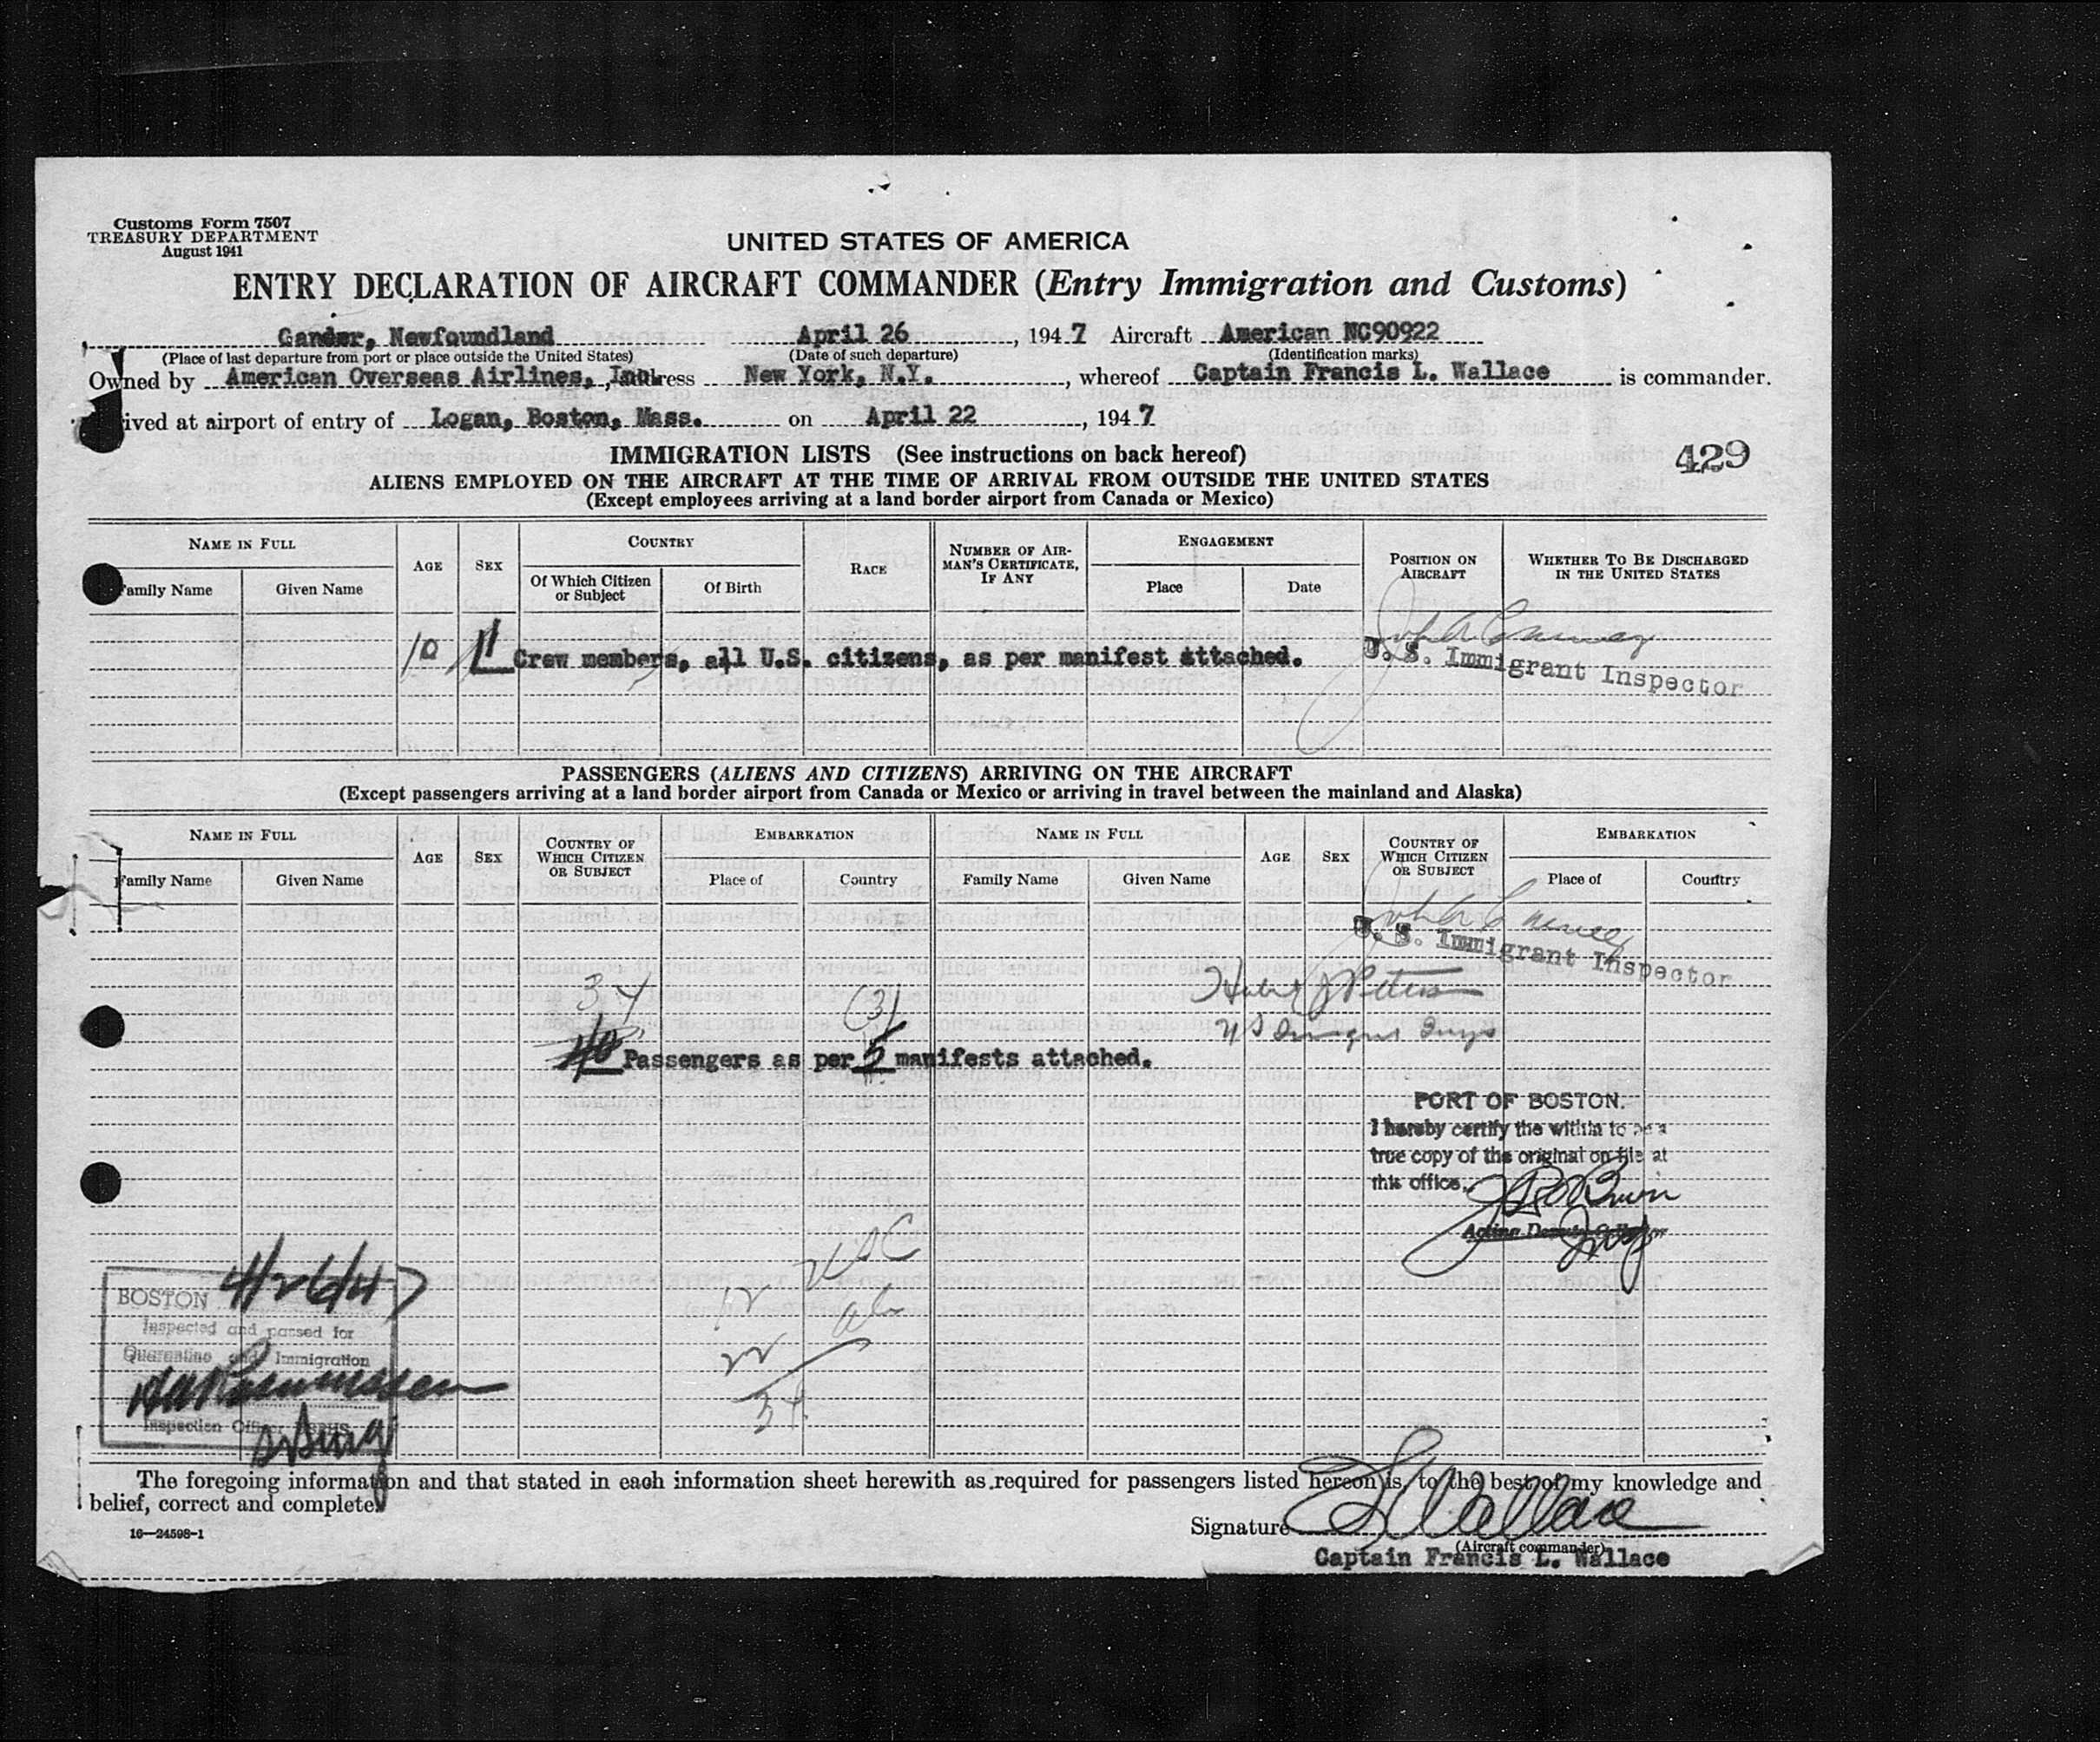 Customs Form 7507
TREASURY DEPARTMENT
August 1941
UNITED STATES OF AMERICA
ENTRY DECLARATION OF AIRCRAFT COMMANDER (Entry Immigration and Customs)
Gander, Newfoundland April 26, 1947 Aircraft American NC90922
(Place of last departure from port or place outside the United States) (Date of such departure) (Identification marks)
Owned by American Overseas Airlines, Inc. New York, N.Y., whereof Captain Francis L. Wallace is commander.
ived at airport of entry of Logan, Boston, Mass. on April 22, 1947
429
IMMIGRATION LISTS (See instructions on back hereof)
ALIENS EMPLOYED ON THE AIRCRAFT AT THE TIME OF ARRIVAL FROM OUTSIDE THE UNITED STATES
(Except employees arriving at a land border airport from Canada or Mexico)
NAME IN FULL AGE SEX COUNTRY RACE NUMBER OF AIRMAN'S CERTIFICATE, IF ANY ENGAGEMENT POSITION ON AIRCRAFT WHETHER TO BE DISCHARGED IN THE UNITED STATES
Family Name Given Name Of Which Citizen or Subject Of Birth Place Date
10 11 Crew members, all U.S. citizens, as per manifest attached.
U. S. Immigrant Inspector
PASSENGERS (ALIENS AND CITIZENS) ARRIVING ON THE AIRCRAFT
(Except passengers arriving at a land border airport from Canada or Mexico or arriving in travel between the mainland and Alaska)
NAME IN FULL AGE SEX COUNTRY OF WHICH CITIZEN OR SUBJECT EMBARKATION NAME IN FULL AGE SEX COUNTRY OF WHICH CITIZEN OR SUBJECT EMBARKATION
Family Name Given Name Place of Country Family Name Given Name Place of Country
U. S. Immigrant Inspector
34 (3)
40 Passengers as per 5 manifests attached.
PORT OF BOSTON.
I hereby certify the within to be a
true copy of the original on file at
this office.
Acting Deputy Collector
12 USC
22
34
4/26/47
BOSTON
Inspected and passed for
Quarantine and Immigration
Inspection Officer USPHS
The foregoing information and that stated in each information sheet herewith as required for passengers listed hereon is, to the best of my knowledge and
belief, correct and complete.
16—24598-1
Signature F L Wallace
(Aircraft commander)
Captain Francis L. Wallace